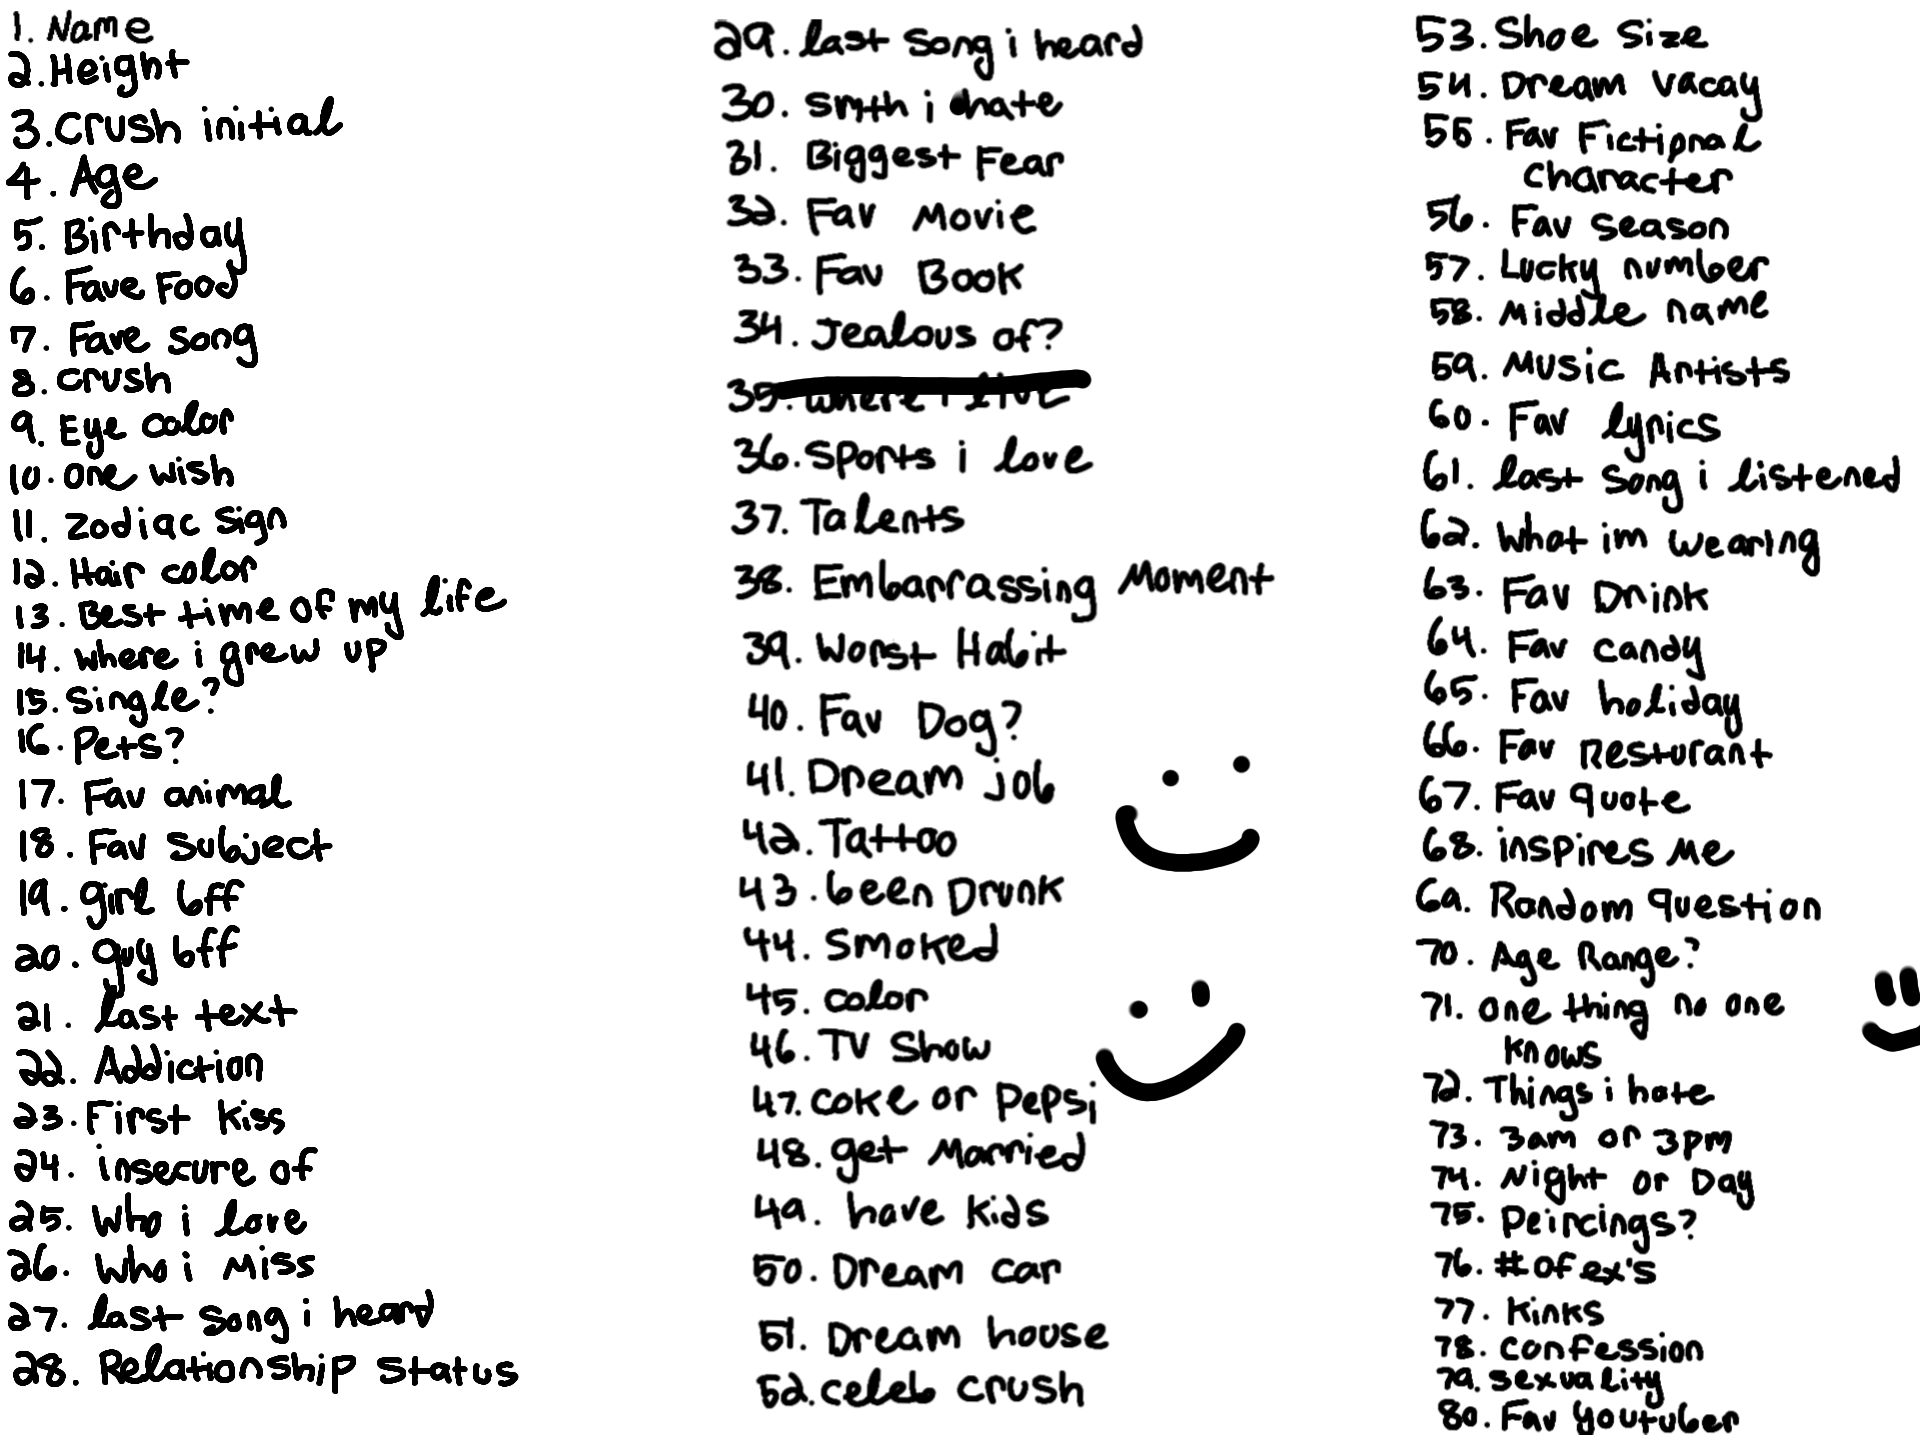 1. Name
2. Height
3. Crush initial
4. Age
5. Birthday
6. Fave Food
7. Fave song
8. crush
9. Eye color
10. one wish
11. zodiac sign
12. Hair color
13. Best time of my life
14. where i grew up
15. Single?
16. Pets?
17. Fav animal
18. Fav subject
19. girl bff
20. guy bff
21. last text
22. Addiction
23. First kiss
24. insecure of
25. Who i love
26. Who i miss
27. last song i heard
28. Relationship status
29. last song i heard
30. smth i hate
31. Biggest Fear
32. Fav Movie
33. Fav Book
34. Jealous of?
35. where i live
36. Sports i love
37. Talents
38. Embarrassing Moment
39. Worst Habit
40. Fav Dog?
41. Dream job
42. Tattoo
43. been Drunk
44. Smoked
45. color
46. TV Show
47. coke or Pepsi
48. get Married
49. have kids
50. Dream car
51. Dream house
52. celeb crush
53. Shoe Size
54. Dream vacay
55. Fav Fictional
character
56. Fav season
57. Lucky number
58. Middle name
59. Music Artists
60. Fav lyrics
61. last song i listened
62. What im wearing
63. Fav Drink
64. Fav candy
65. Fav holiday
66. Fav Resturant
67. Fav quote
68. inspires me
69. Random question
70. Age Range?
71. one thing no one
knows
72. Things i hate
73. 3am or 3pm
74. Night or Day
75. Peircings?
76. # of ex's
77. Kinks
78. confession
79. sexuality
80. Fav Youtuber